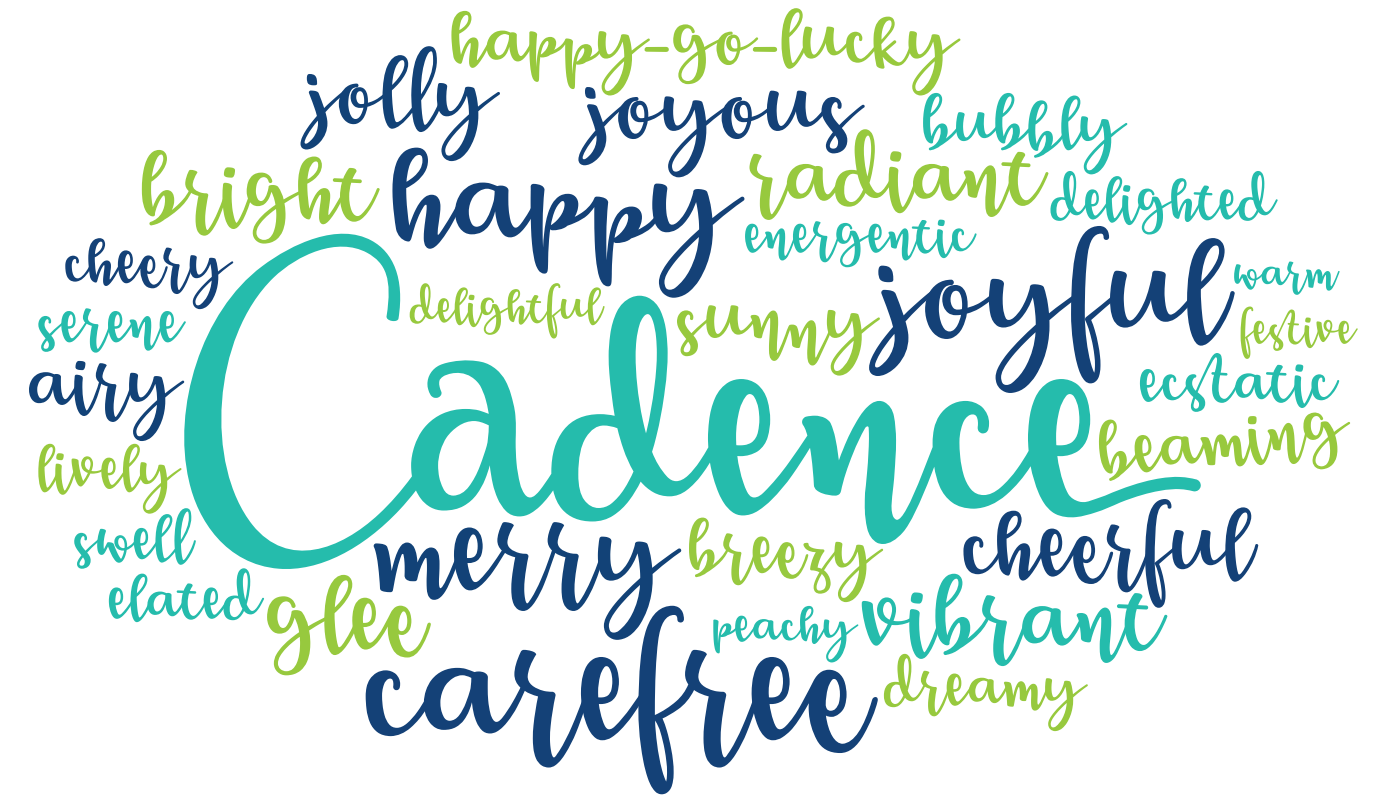 happy-go-lucky
jolly
joyous
bubbly
bright
happy
radiant
delighted
energentic
cheery
joyful
warm
delightful
sunny
serene
festive
airy
ecstatic
Cadence
beaming
lively
swell
merry
breezy
cheerful
elated
glee
peachy
vibrant
carefree
dreamy